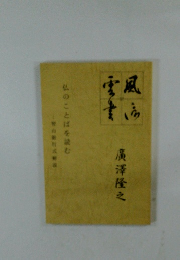 風信
雲書
廣澤隆之
仏のことばを読む